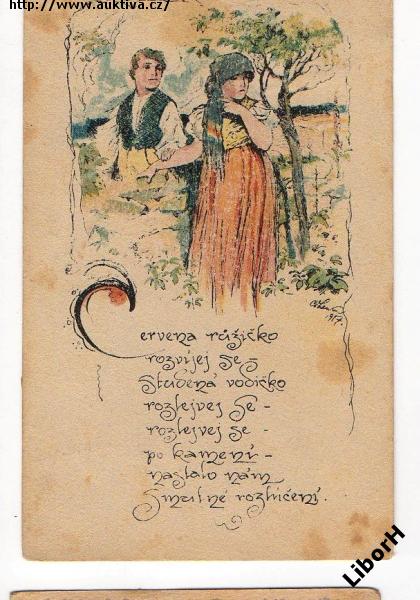 http://www.auktiva.cz7
1917.
Červená růžičko
rozvíjej se -
Studená vodičko
rozlejvej se -
rozlejvej se -
po kamení -
nastalo nám
Smutné rozlučení.
LiborH